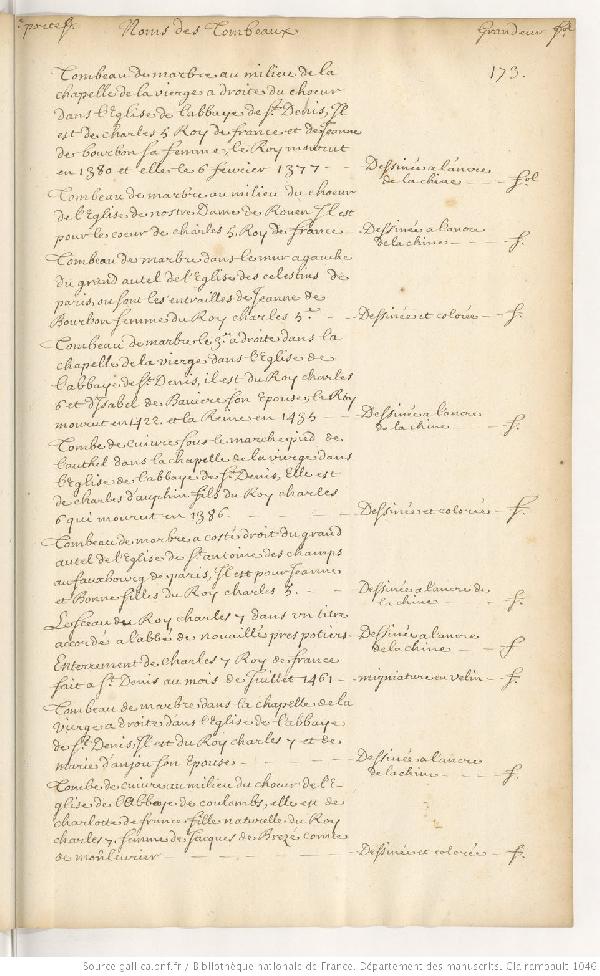 portef. Noms des Tombeaux Grandeur fol
173.
Tombeau de marbre au milieu de la
chapelle de la vierge a droite du choeur
dans l'Eglise de l'abbaye de St. Denis, Il
est de charles 5 Roy de france et de Jeanne
de bourbon sa femme, le Roy mourut
en 1380 et elle le 6 fevrier 1377 - Dessinée a l'ancre
de la chine - - fol
Tombeau de marbre au milieu du choeur
de l'Eglise de nostre Dame de Rouen Il est
pour le coeur de charles 5 Roy de france - Dessinée a l'ancre
de la chine - - - f.
Tombeau de marbre dans le mur a gauche
du grand autel de l'Eglise des celestins de
paris ou sont les entrailles de Jeanne de
Bourbon femme du Roy charles 5. - - Dessinée et colorée - f.
Tombeau de marbre le 3e. a droite dans la
chapelle de la vierge dans l'Eglise de
l'abbaye de St. Denis, il est du Roy charles
6 et d'Isabel de Baviere son Epouse, le Roy
mourut en 1422. et la Reine en 1435 - Dessinée a l'ancre
de la chine - - f.
Tombe de cuivre sous le marchepied de
l'authel dans la chapelle de la vierge dans
l'Eglise de l'abbaye de St. Denis, Elle est
de charles dauphin fils du Roy charles
6 qui mourut en 1386. - - Dessinée et colorée - f.
Tombeau de marbre a costé droit du grand
autel de l'Eglise de St. antoine des champs
au fauxbourg de paris, Il est pour Jeanne
et Bonne filles du Roy charles 5. - - Dessinée a l'ancre de
la chine - - f.
Le sceau du Roy charles 7 dans un titre
accordé a l'abbé de nouaillé pres potiers - Dessinée a l'ancre
de la chine - - f
Enterrement de charles 7 Roy de france
fait a St. Denis au mois de Juillet 1461 - migniature en velin - f.
Tombeau de marbre dans la chapelle de la
vierge a droite dans l'Eglise de l'abbaye
de St. Denis, Il est du Roy charles 7 et de
marie d'anjou son Epouse - - Dessinée a l'ancre
de la chine - - - f.
Tombe de cuivre au milieu du choeur de l'E-
glise de l'Abbaye de coulombs, elle est de
charlotte de france fille naturelle du Roy
charles 7. femme de Jacques de Brezé comte
de moulevrier - - - - Dessinée et colorée - f.
Source gallica.bnf.fr / Bibliothèque nationale de France. Département des manuscrits. Clairambault 1046